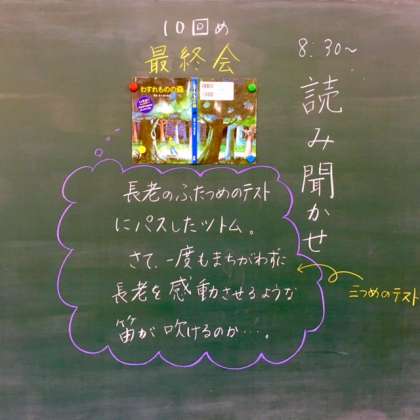 10回め
最終会
8:30〜
読み聞かせ
わすれものの森
長老のふたつめのテスト
にパスしたツトム。
さて、一度もまちがわずに
長老を感動させるような
笛が吹けるのか…。
三つめのテスト